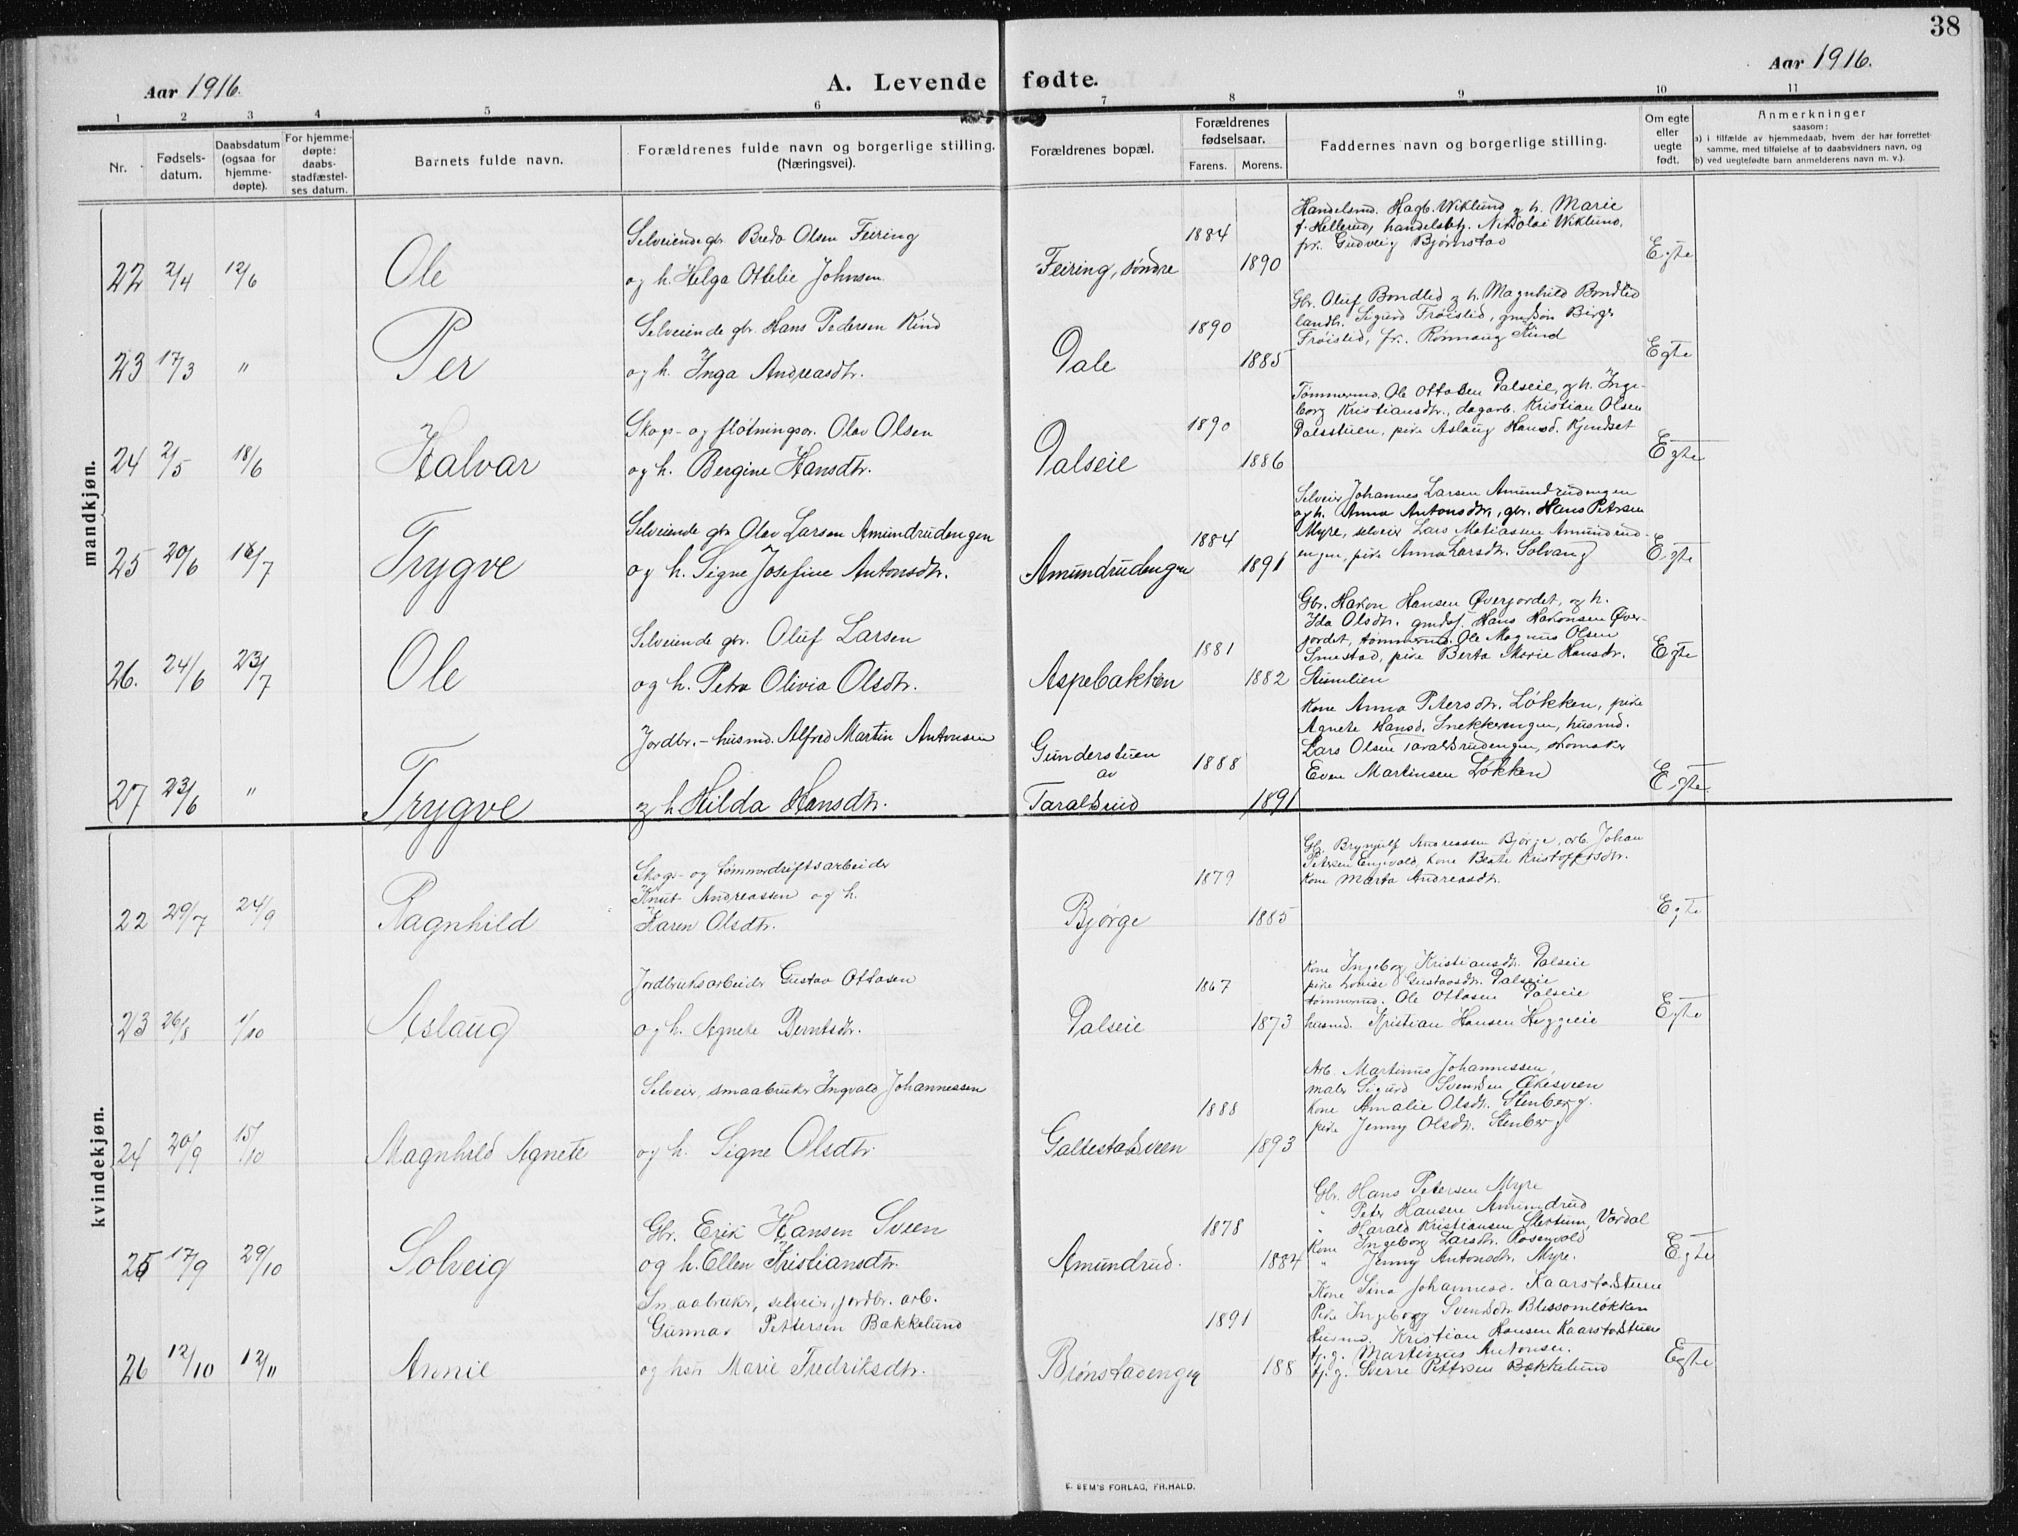 38
Aar 1916. A. Levende fødte. Aar 1916.
1 2 3 4 5 6 7 8 9 10 11
Nr. Fødsels-datum. Daabsdatum (ogsaa for hjemme-døpte). For hjemme-døpte: daabs-stadfæstel-ses datum. Barnets fulde navn. Forældrenes fulde navn og borgerlige stilling. (Næringsvei). Forældrenes bopæl. Forældrenes fødselsaar. Farens. Morens. Faddernes navn og borgerlige stilling. Om egte eller uegte født. Anmerkninger saasom: a) i tilfælde av hjemmedaab, hvem der har forrettet samme, med tilføielse af to daabsvidners navn, og b) ved uegtefødte barn anmelderens navn m. v.).
mandkjøn.
22 2/4 12/6 Ole
Selveiende gbr. Bredo Olsen Feiring
og h. Helga Ottelie Johnsen
Feiring, søndre 1884 1890
Handelsmd. Hagb. Wiklund og h. Marie
f. Hellerud, handelsbtj. Nikolai Wiklund,
pr. Gudveig Bjørnstad
Egte
23 17/3 " Per
Selveiende gbr. Hans Pedersen Kind
og h. Inga Andreasdtr.
Dale 1890 1885
Gbr. Oluf Bondlid og h. Magnhild Bondlid
landh. Sigurd Frøislid, gmdsøn Birger
Frøislid, fr. Rønnaug Kind
Egte
24 2/5 18/6 Halvar
Skogs- og fløtningsar. Olav Olsen
og h. Bergine Hansdtr.
Dalseie 1890 1886
Tømmermd. Ole Ottosen Dalseie, og h. Inge-
borg Kristiansdtr., dagarb. Kristian Olsen
Dalsstuen, pike Aslaug Hansd. Kjendset
Egte
25 20/6 16/7 Trygve
Selveiende gbr. Olav Larsen Amundrudengen
og h. Signe Josefine Antonsdtr.
Amundrudengen 1884 1891
Selveier Johannes Larsen Amundrudengen
og h. Anna Antonsdtr., gbr. Hans Petersen
Myre, selveier Lars Matiassen Amundrud-
engen, pike Anna Larsdtr. Solvang
Egte
26. 24/6 23/7 Ole
Selveiende gbr. Oluf Larsen
og h. Petra Olivia Olsdtr.
Aspebakken 1881 1882
Gbr. Hakon Hansen Øverjordet, og h.
Ida Olsdtr. gmdsf. Hans Hakonsen Øver-
jordet, tømmermd. Ole Magnus Olsen
Smestad, pike Berta Marie Hansdtr.
Stumlien
Egte
27 23/6 " Trygve
Jordbr.- husmd. Alfred Martin Antonsen
og h. Hilda Hansdtr.
Gunderstuen
av
Taralsrud 1888 1891
Kone Anna Petersdtr. Løkken, pike
Agnete Hansd. Snekkerengen, husmd.
Lars Olsen Taralsrudengen, skomaker
Even Martinsen Løkken
Egte
kvindekjøn.
22 29/7 24/9 Ragnhild
Skogs- og tømmerdriftsarbeider
Knut Andreassen og h.
Karen Olsdtr.
Bjørge 1879 1885
Gb. Brynjulf Andreassen Bjørge, arb. Johan
Petersen Engevold, kone Beate Kristoffersdtr.
kone Marta Andreasdtr.
Egte
23 26/8 1/10 Aslaug
Jordbruksarbeider Gustav Ottosen
og h. Agnete Berntsdtr.
Dalseie 1867 1873
Kone Ingeborg Kristiansdtr. Dalseie
pike Louise Gustavsdtr. Dalseie
tømmermd. Ole Ottosen Dalseie
husmd. Kristian Hansen Heggeeie
Egte
24 20/9 15/10 Magnhild Agnete
Selveier, smaabruker Ingvald Johannessen
og h. Signe Olsdtr.
Galtestadsveen 1888 1893
Arb. Martinus Johannessen,
maler Sigurd Svendsen Økesveen
Kone Amalie Olsdtr. Stenberg.
pike Jenny Olsdtr. Stenberg
25 17/9 29/10 Solveig
Gbr. Erik Hansen Sveen
og h. Ellen Kristiansdtr.
Amundrud. 1878 1884
Gbr. Hans Petersen Myre
" Peter Hansen Amundrud
" Harald Kristiansen Stertum, Vardal
Kone Ingeborg Larsdtr. Rosenvold
" Jenny Antonsdtr. Myre.
Egte
26 12/10 12/11 Annie
Smaabruker, selveier, jordbr. arb.
Gunnar Pettersen Bakkelund
og hstr Marie Fredriksdtr.
Brønstadengen 1891 188
Kone Sina Johannesd. Kaarstadstuen
Pike Ingeborg Svendsdtr. Blessomløkken
Husmd. Kristian Hansen Kaarstadstuen
tj.g. Martinus Antonsen.
tj.g. Sverre Pettersen Bakkelund
Egte
E. SEM'S FORLAG, FR.HALD.